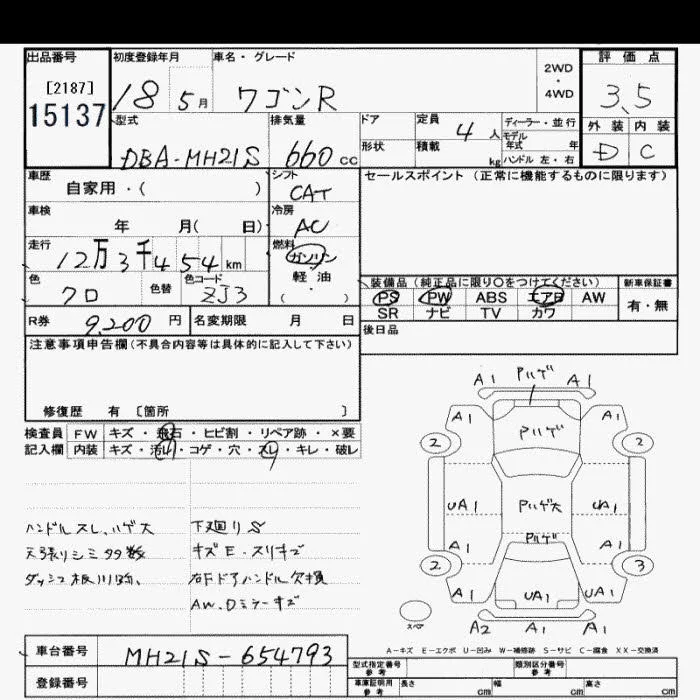 出品番号 初度登録年月 車名・グレード 2WD・4WD 評価点
[2187] 15137 18 5月 ワゴンR 3.5
型式 排気量 ドア 定員 4人 ディーラー・並行 外装 内装
DBA-MH21S 660cc 形状 積載 kg モデル年式 年 ハンドル 左・右 D C
車歴 シフト セールスポイント(正常に機能するものに限ります)
自家用・( ) CAT
車検 冷房
年 月( 日) AC
走行 燃料
12万3千454km ガソリン
色 色替 色コード 軽・油 装備品(純正品に限り○をつけてください) 新車保証書
クロ ZJ3 ( ) PS PW ABS エアB AW 有・無
SR ナビ TV カワ
R券 9,200円 名変期限 月 日 後日品
注意事項申告欄(不具合内容等は具体的に記入して下さい)
修復歴 有 〔箇所 〕
検査員 FW キズ・飛石・ヒビ割・リペア跡・×要
記入欄 内装 キズ・汚れ・コゲ・穴・スレ・キレ・破レ
ハンドルスレ、ハゲ大 下廻りS
天張りシミ多数 キズE・スリキズ
右Fドアハンドル欠損
AW、Dミラーキズ
A1 Pハゲ A1
A1 A1
2 Pハゲ 2
UA1 Pハゲ大 UA1
Pハゲ
A1 A1
2 3
A1 UA1 UA1
スペア A2 A1 A1
A-キズ E-エクボ U-凹み W-補修跡 S-サビ C-腐食 XX-交換済
車台番号 MH21S-654793
型式指定番号 参考 類別区分番号 参考
登録番号 車庫証明用 参考 長さ cm 幅 cm 高さ cm